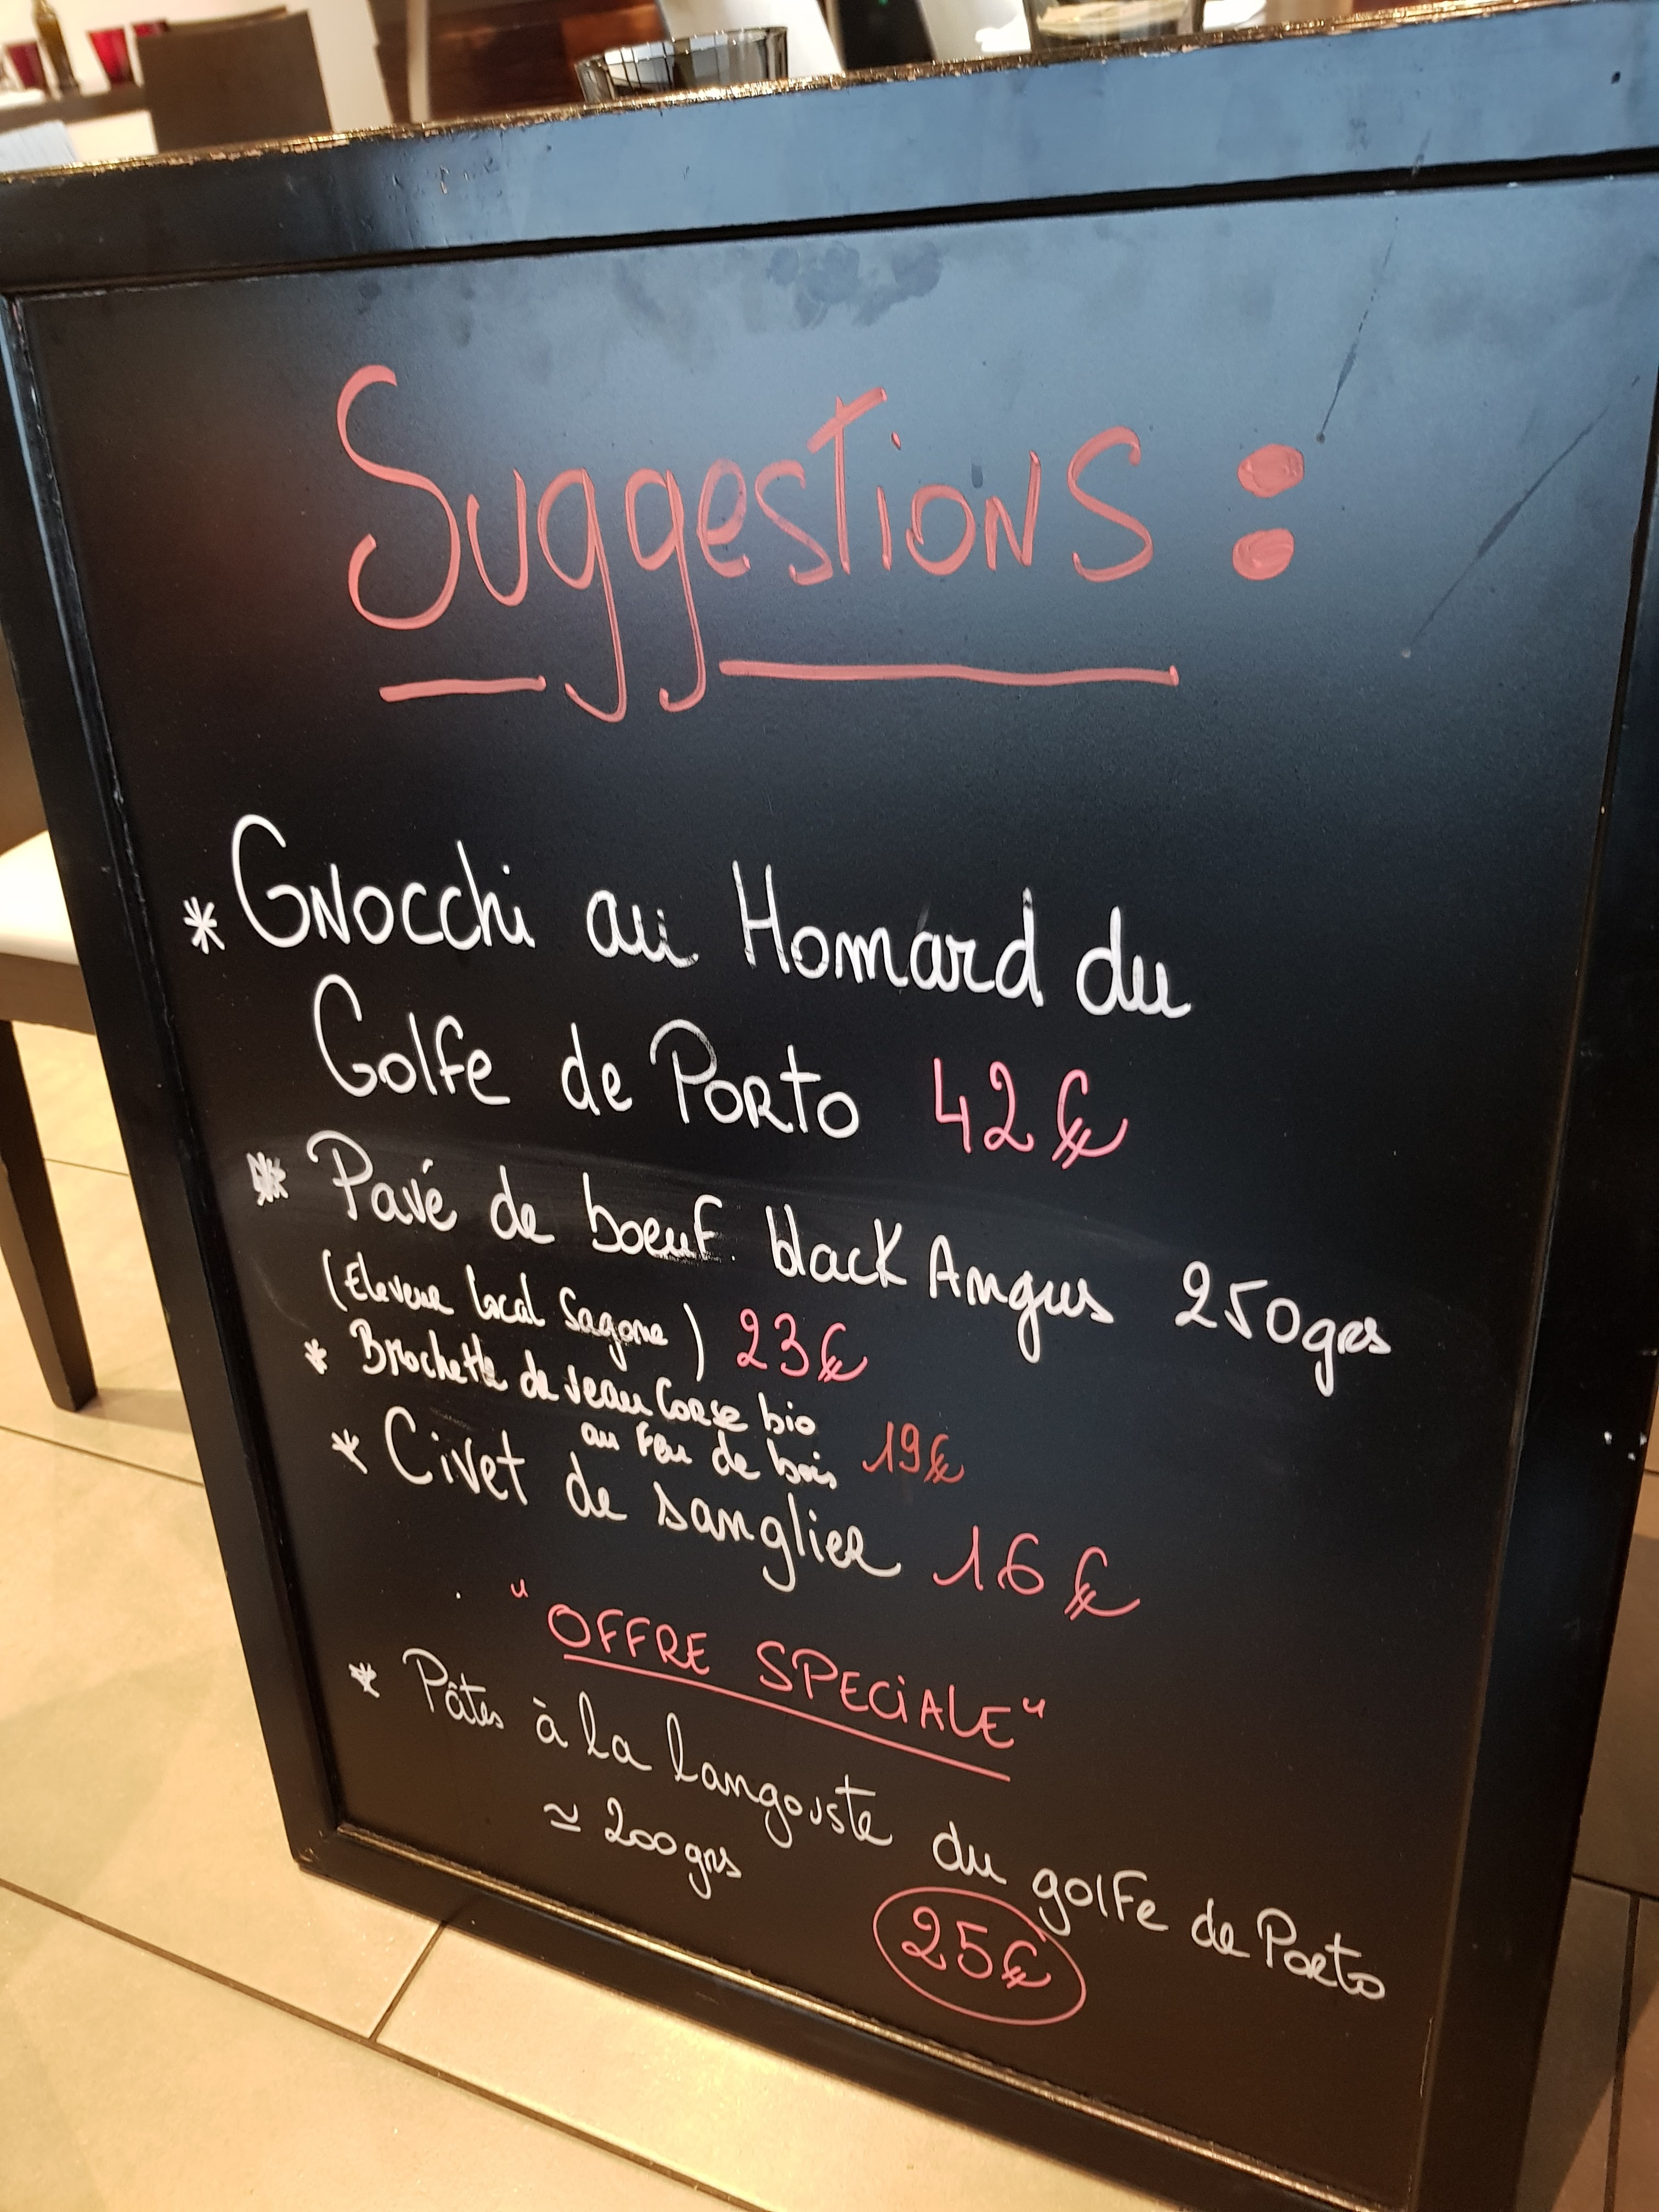 Suggestions :
* Gnocchi au Homard du
Golfe de Porto 42€
* Pavé de boeuf black Angus 250grs
(Eleveur local Sagone) 23€
* Brochette de veau Corse bio
au feu de bois 19€
* Civet de sanglier 16€
"OFFRE SPECiALE"
* Pâtes à la langouste du golfe de Porto
≃ 200grs
25€